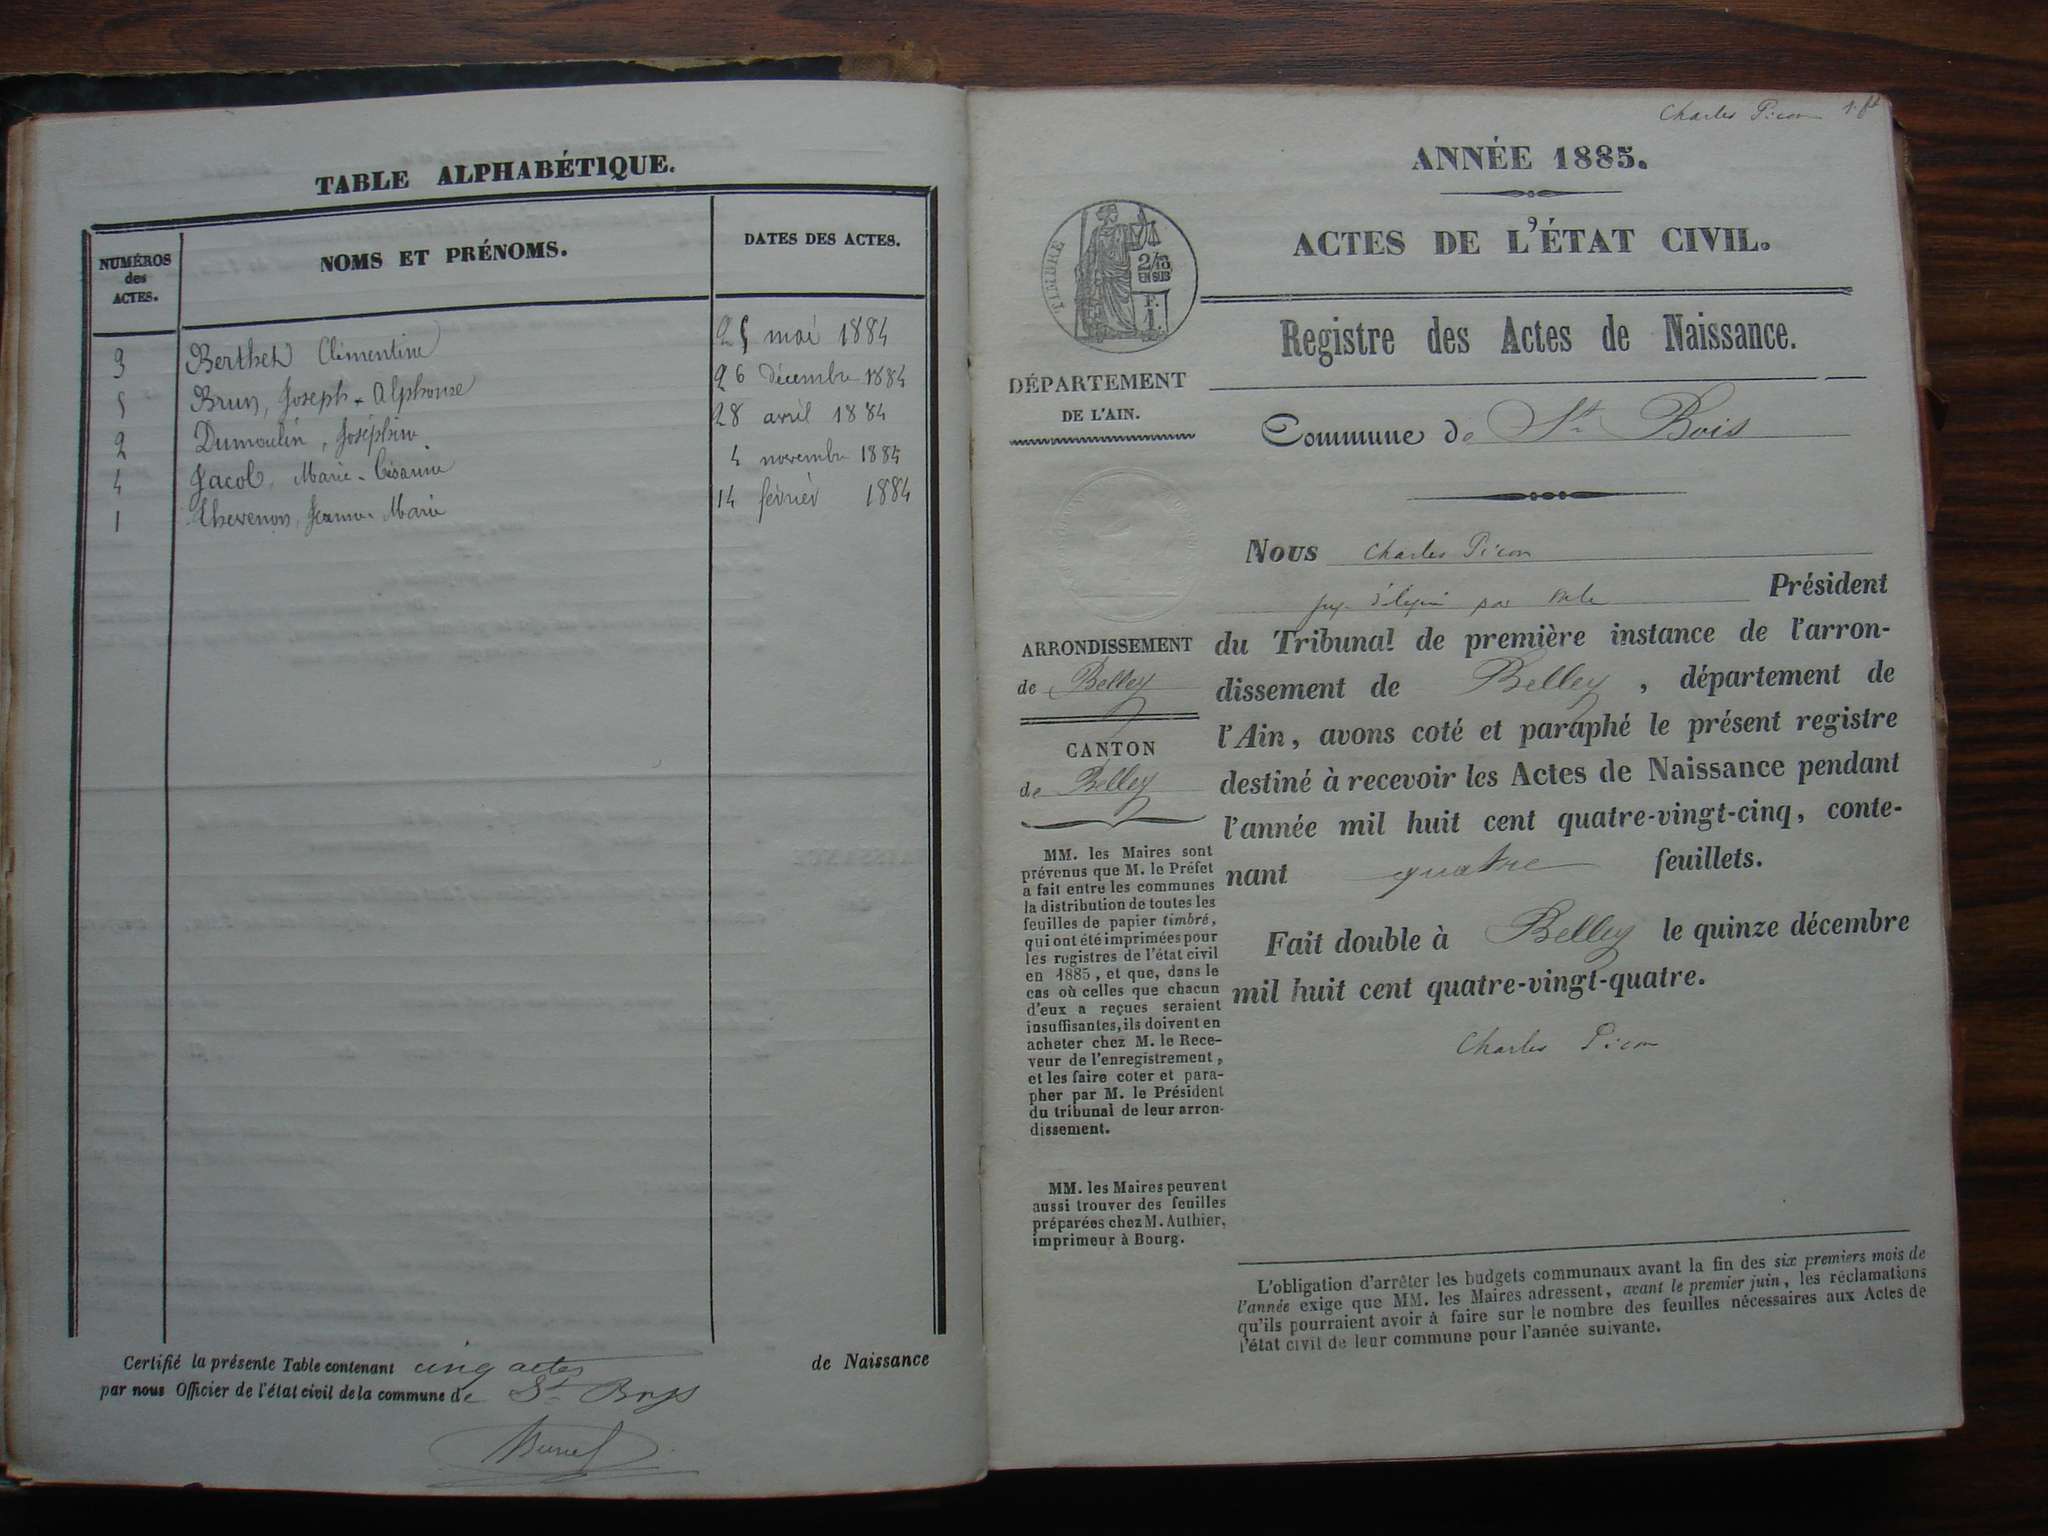 TABLE ALPHABÉTIQUE.
NUMÉROS
des
ACTES.
NOMS ET PRÉNOMS.
DATES DES ACTES.
3 Berthet Clémentine 25 mai 1884
5 Brun, Joseph-Alphonse 26 décembre 1884
2 Dumoulin, Joséphine 28 avril 1884
4 Jacob, Marie-Césarine 4 novembre 1884
1 Thevenon, Jeanne-Marie 14 février 1884
Certifié la présente Table contenant cinq actes de Naissance
par nous Officier de l'état civil de la commune de St Boys
Charles Picon 1 ft
ANNÉE 1885.
ACTES DE L'ÉTAT CIVIL.
TIMBRE
2/10
EN SUS
F.
1.
Registre des Actes de Naissance.
DÉPARTEMENT
DE L'AIN.
Commune de St Bois
Nous Charles Picon
Président
du Tribunal de première instance de l'arron-
dissement de Belley, département de
l'Ain, avons coté et paraphé le présent registre
destiné à recevoir les Actes de Naissance pendant
l'année mil huit cent quatre-vingt-cinq, conte-
nant quatre feuillets.
Fait double à Belley le quinze décembre
mil huit cent quatre-vingt-quatre.
Charles Picon
ARRONDISSEMENT
de Belley
CANTON
de Belley
MM. les Maires sont
prévenus que M. le Préfet
a fait entre les communes
la distribution de toutes les
feuilles de papier timbré,
qui ont été imprimées pour
les registres de l'état civil
en 1885, et que, dans le
cas où celles que chacun
d'eux a reçues seraient
insuffisantes, ils doivent en
acheter chez M. le Rece-
veur de l'enregistrement,
et les faire coter et para-
pher par M. le Président
du tribunal de leur arron-
dissement.
MM. les Maires peuvent
aussi trouver des feuilles
préparées chez M. Authier,
imprimeur à Bourg.
L'obligation d'arrêter les budgets communaux avant la fin des six premiers mois de
l'année exige que MM. les Maires adressent, avant le premier juin, les réclamations
qu'ils pourraient avoir à faire sur le nombre des feuilles nécessaires aux Actes de
l'état civil de leur commune pour l'année suivante.